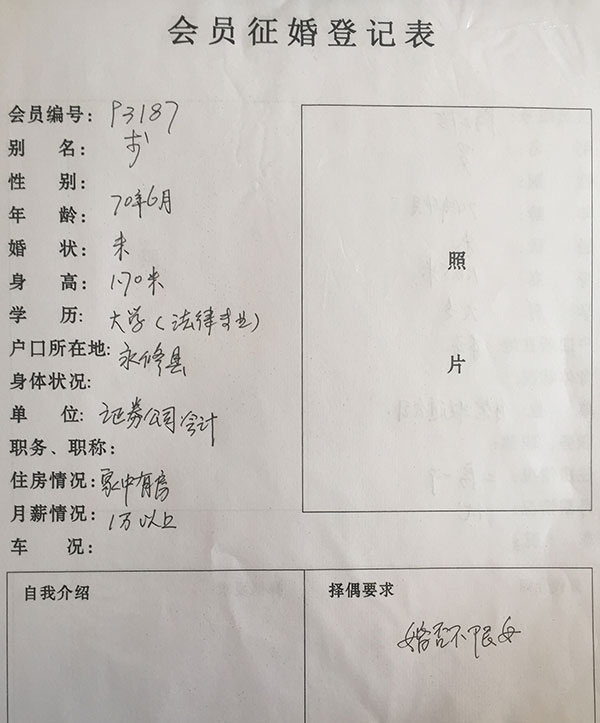 会员征婚登记表
会员编号: P3187
别 名:
性 别:
年 龄: 70年6月
婚 状: 未
身 高: 1.70米
学 历: 大学(法律专业)
户口所在地: 永修县
身体状况:
单 位: 证券公司会计
职务、职称:
住房情况: 家中有房
月薪情况: 1万以上
车 况:
照
片
自我介绍
择偶要求
婚否不限